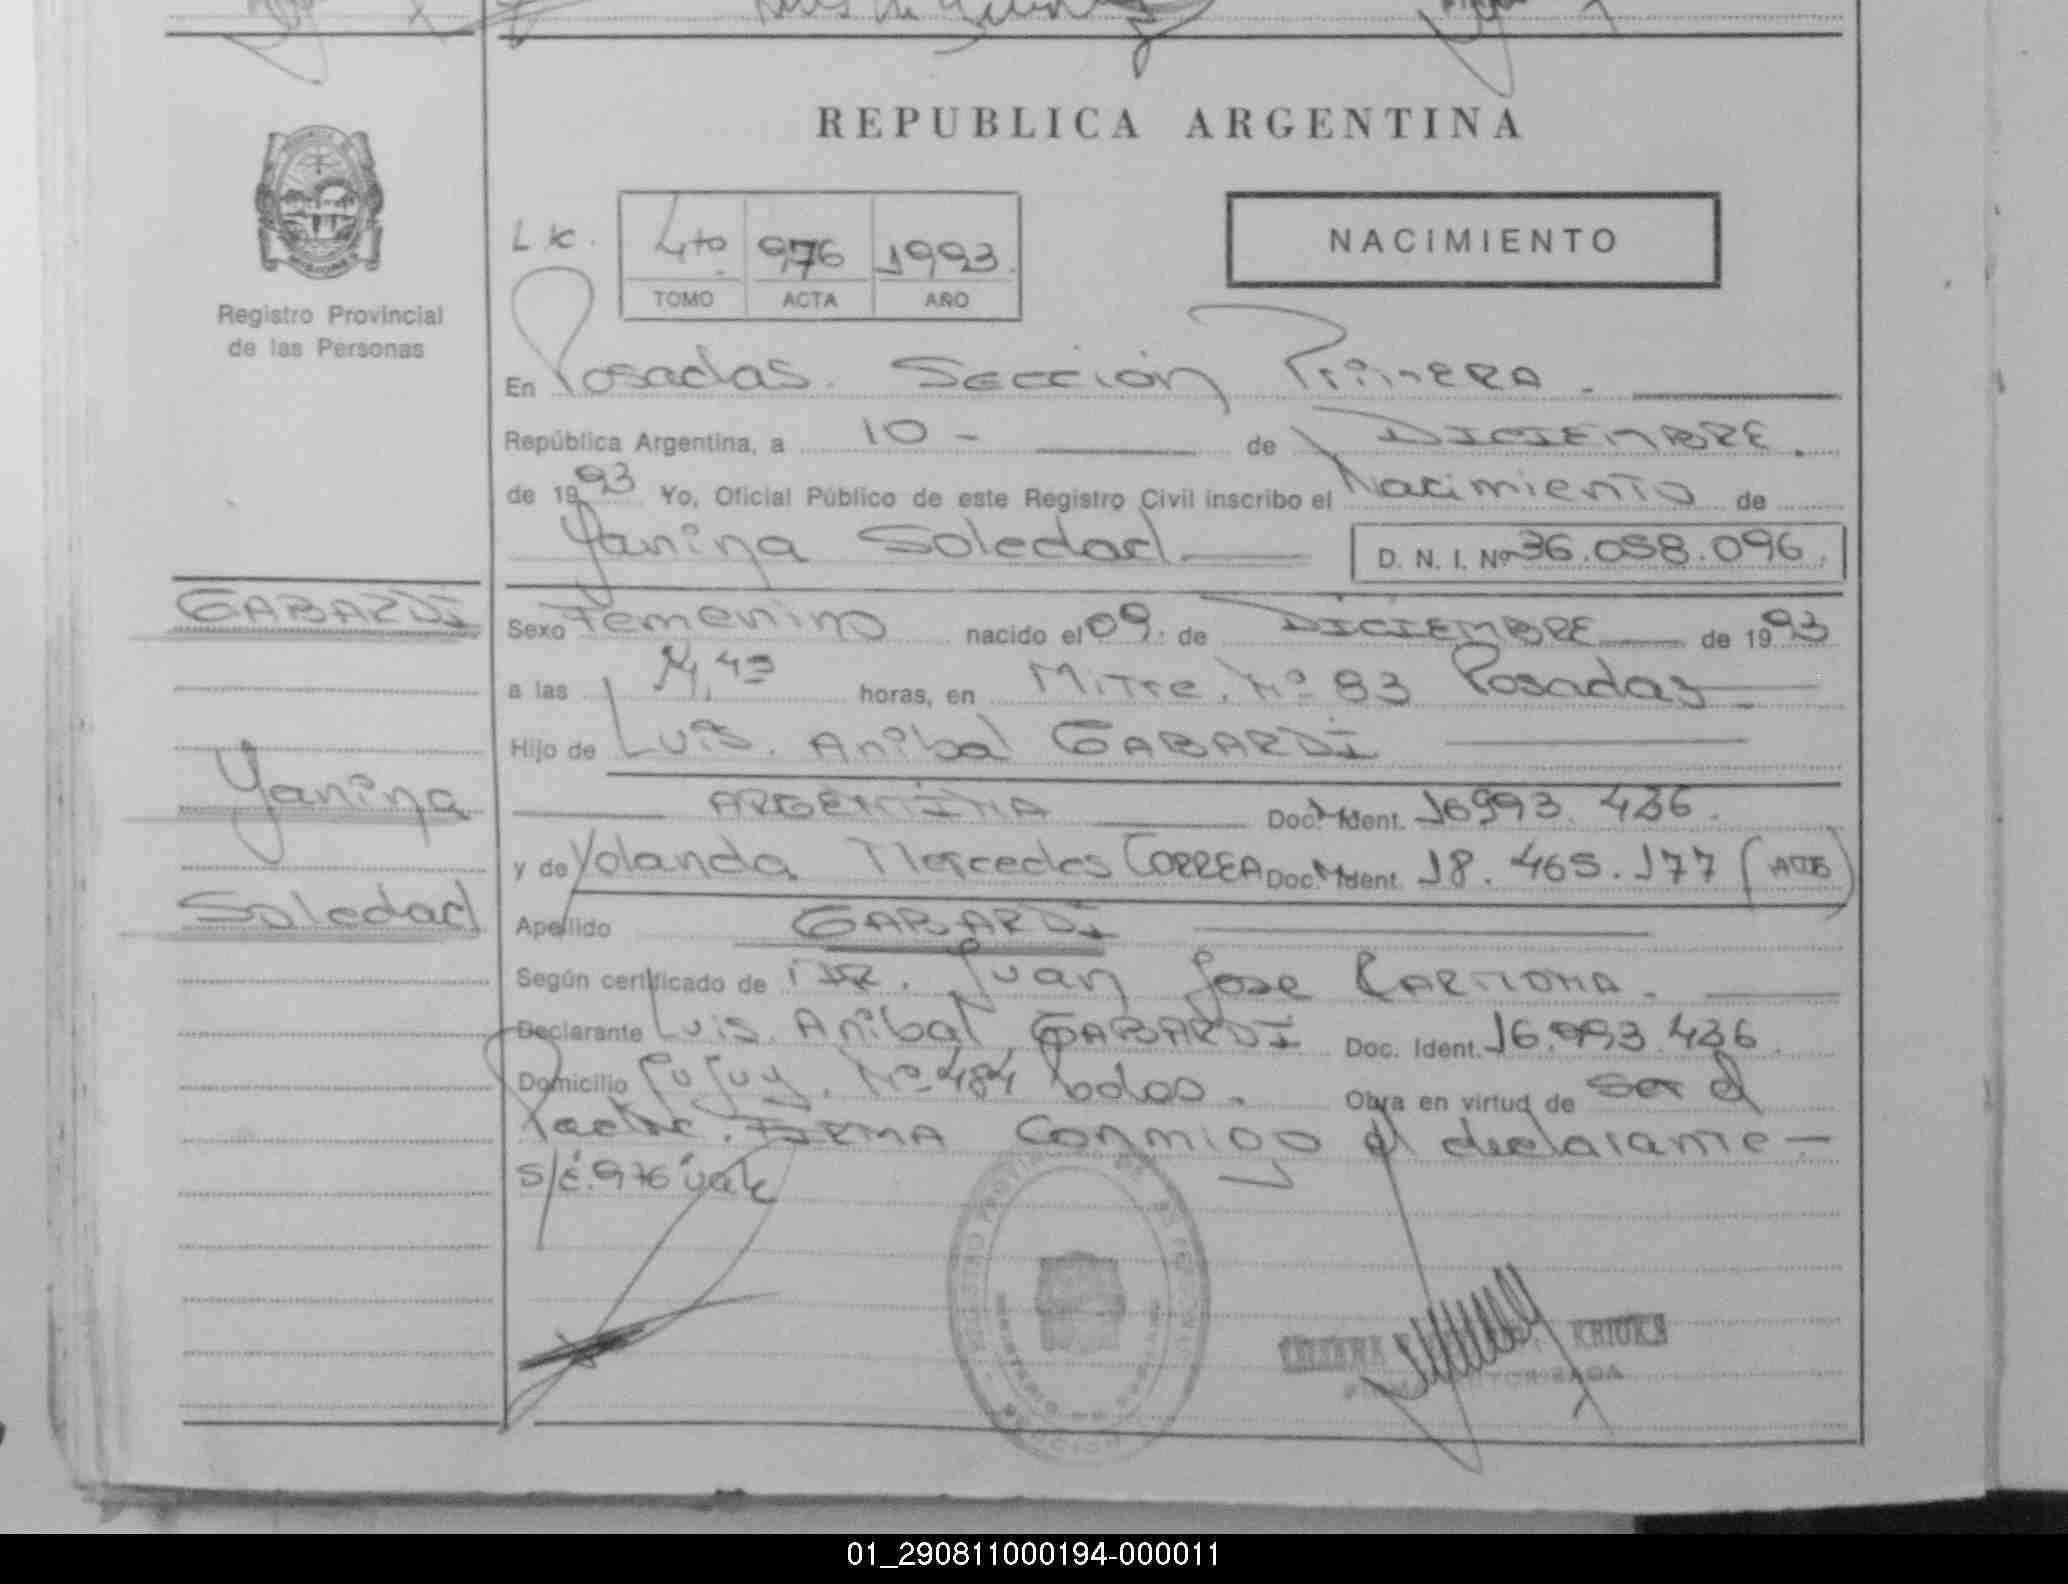 REPUBLICA ARGENTINA
MISIONES
Registro Provincial
de las Personas
4to 976 1993.
TOMO ACTA AÑO
NACIMIENTO
En Posadas. Sección Primera.
República Argentina, a 10 - de DICIEMBRE.
de 1993 Yo, Oficial Público de este Registro Civil inscribo el Nacimiento de
Yanina Soledad D. N. I. Nº 36.058.096.
GABARDI
Yanina
Soledad
Sexo Femenino nacido el 09. de DICIEMBRE de 1993
a las horas, en Mitre. Nº 83 Posadas
Hijo de Luis. Anibal GABARDI
ARGENTINA Doc. Ident. 16993.436.
y de Yolanda Mercedes CORREA Doc. Ident. 18.465.177
Apellido GABARDI
Según certificado de DR. Juan Jose
Declarante Luis. Anibal GABARDI Doc. Ident. 16.993.436.
Domicilio Jujuy. Nº 484 Pdas. Obra en virtud de ser el
Padre. FIRMA Conmigo el declarante —
S/é. 976 vale
01_290811000194-000011